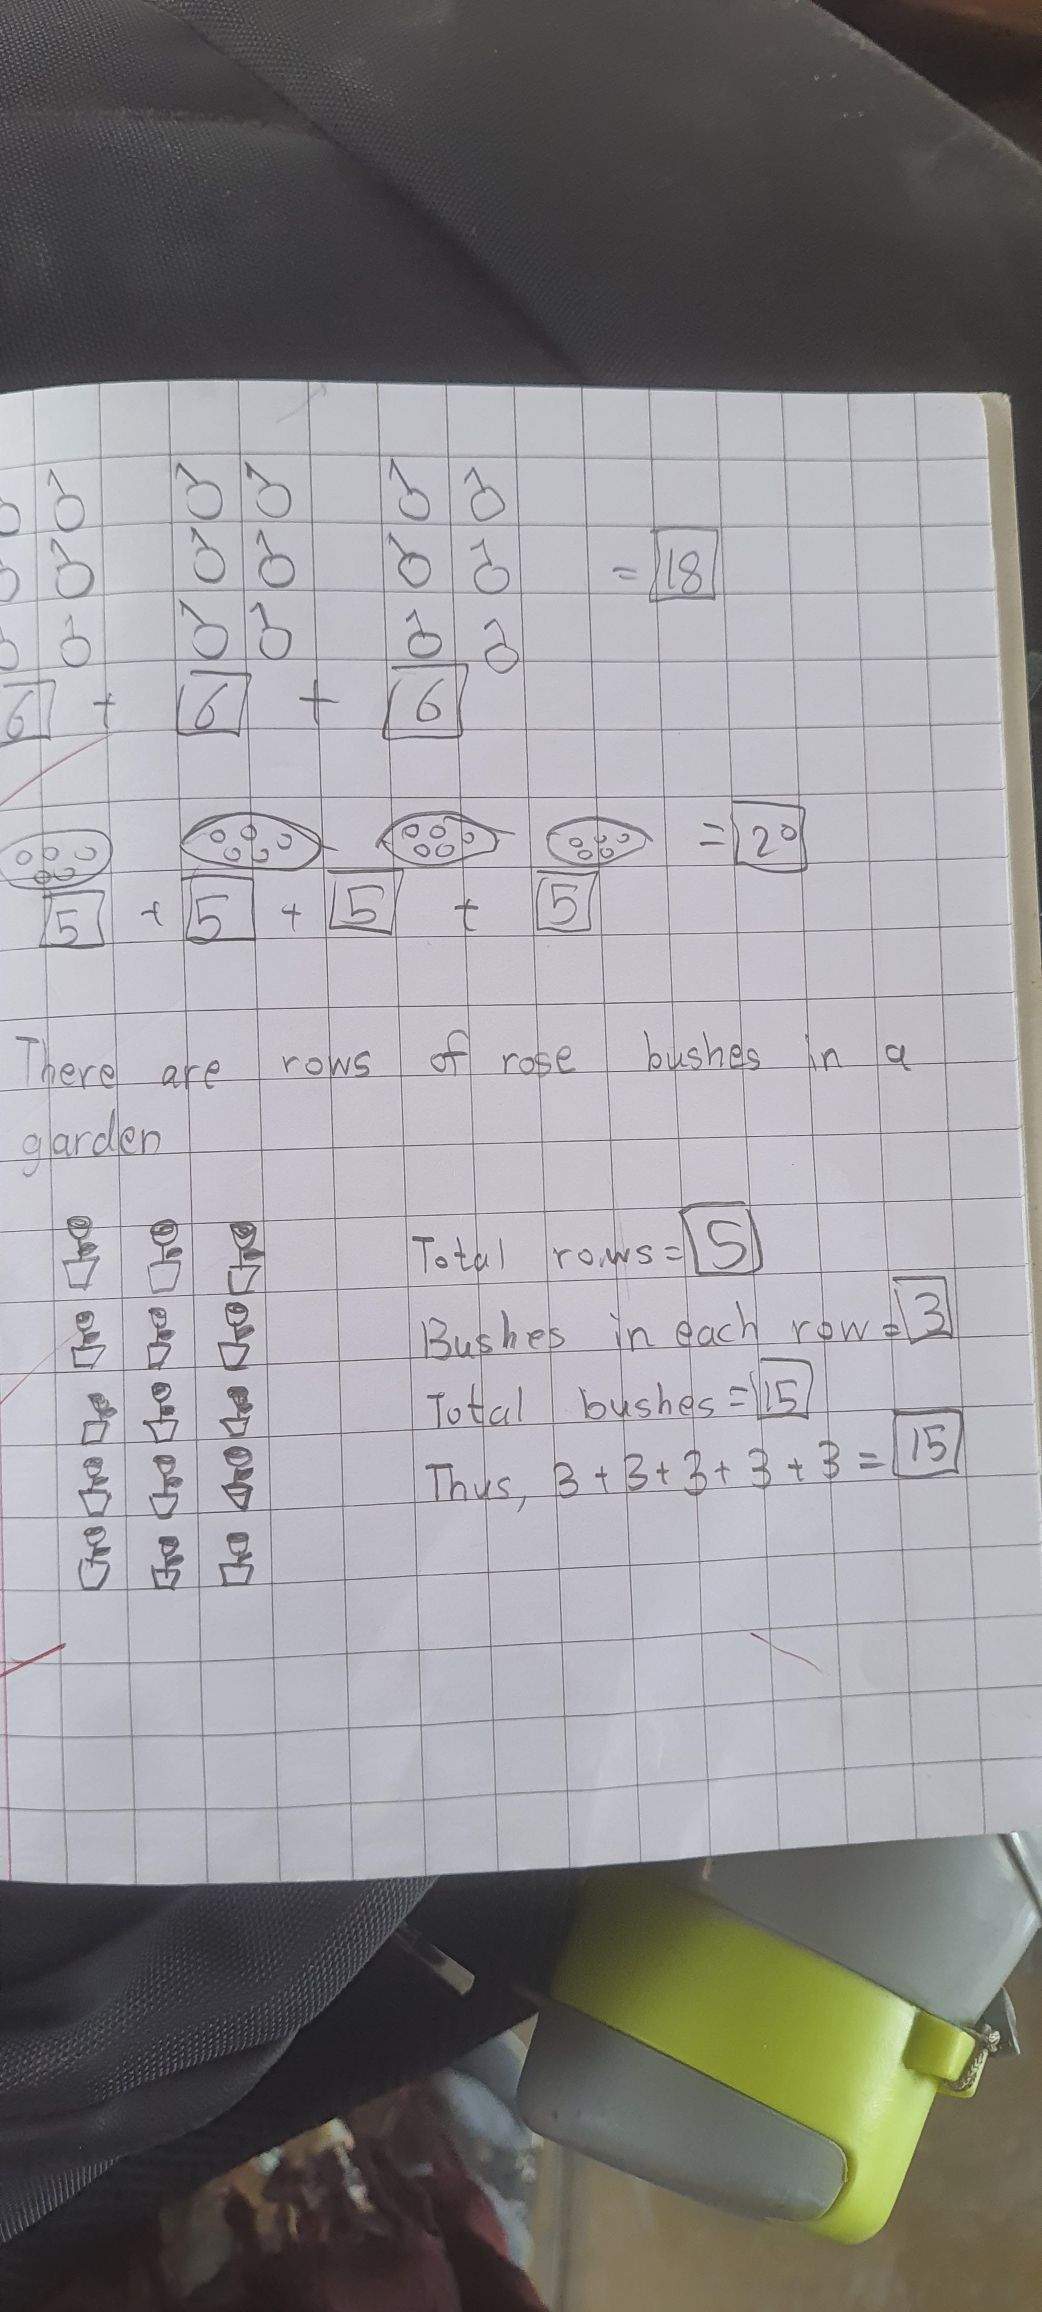 = 18
6 + 6 + 6
= 20
5 + 5 + 5 + 5
There are rows of rose bushes in a
garden
Total rows = 5
Bushes in each row = 3
Total bushes = 15
Thus, 3 + 3 + 3 + 3 + 3 = 15